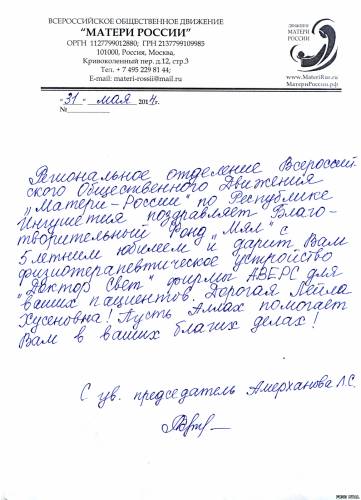 ВСЕРОССИЙСКОЕ ОБЩЕСТВЕННОЕ ДВИЖЕНИЕ
"МАТЕРИ РОССИИ"
ОГРН 1127799012880; ГРН 2137799109985
101000, Россия, Москва,
Кривоколенный пер. д.12, стр.3
Тел. + 7 495 229 81 44;
E-mail: materi-rossii@mail.ru
ДВИЖЕНИЕ
МАТЕРИ
РОССИИ
www.MateriRus.ru
МатериРоссии.рф
"31" мая 2014г.
№
Региональное отделение Всероссий
ского Общественного Движения
„Матери-России" по Республике
Ингушетия поздравляет Благо-
творительный Фонд „Мял" с
5летним юбилеем и дарит Вам
физиотерапевтическое устройство
"Доктор Свет" фирмы АВЕРС для
ваших пациентов. Дорогая Лейла
Хусеновна! Пусть Аллах помогает
Вам в ваших благих делах!
С ув. председатель Амерханова Л.С.